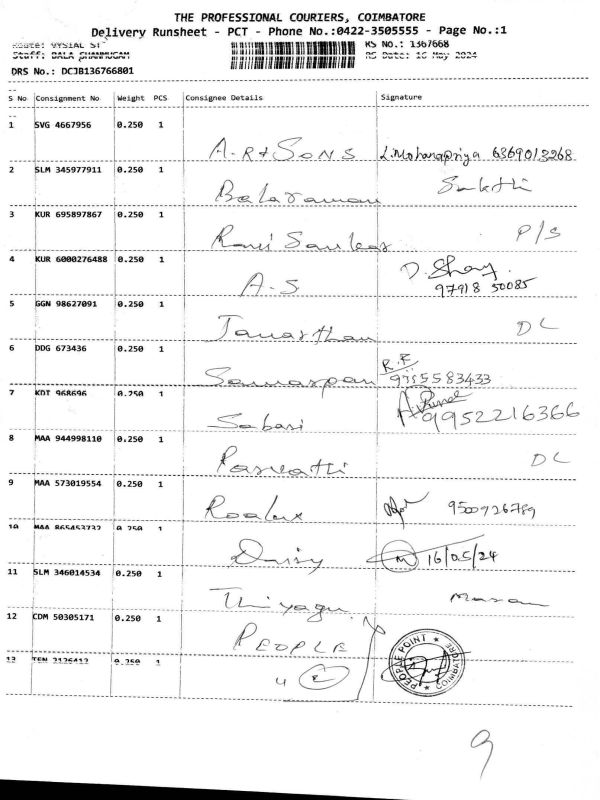 THE PROFESSIONAL COURIERS, COIMBATORE
Delivery Runsheet - PCT - Phone No.:0422-3505555 - Page No.:1
Route: VYSIAL ST RS No.: 1367668
Staff: BALA SHANMUGAM RS Date: 16 May 2024
DRS No.: DCJB136766801
S No Consignment No Weight PCS Consignee Details Signature
1 SVG 4667956 0.250 1
A.R & SONS L.Mohanapriya 6369013268
2 SLM 345977911 0.250 1
Balaraman Sakthi
3 KUR 695897867 0.250 1
Ravi Sankar P/S
4 KUR 6000276488 0.250 1
A.S D. Shay.
97918 50085
5 GGN 98627091 0.250 1
Janarthan DL
6 DDG 673436 0.250 1
R.R
9355583433
7 KDI 968696 0.250 1
Sabari 9952216366
8 MAA 944998110 0.250 1
Parvathi DL
9 MAA 573019554 0.250 1
9500726789
10 MAA 865453732 0.250 1
Daisy 16/05/24
11 SLM 346014534 0.250 1
Thiyagu
12 CDM 50305171 0.250 1
PEOPLE
PEOPLE POINT ★ COIMBATORE ★
13 TEN 2126412 0.250 1
4
9